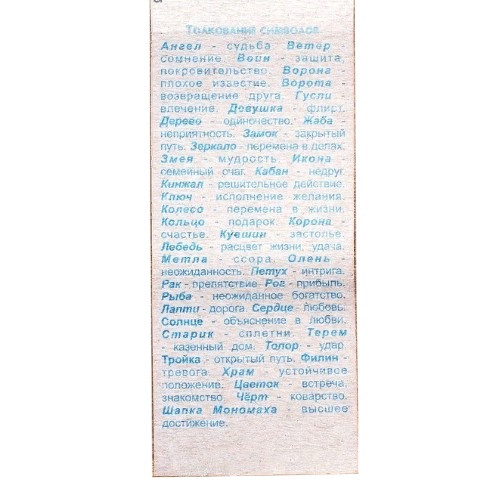 Толкований символов
Ангел - судьба Ветер
сомнение. Воин - защита,
покровительство. Ворона -
плохое известие. Ворота -
возвращение друга. Гусли -
влечение. Девушка - флирт.
Дерево - одиночество. Жаба -
неприятность. Замок - закрытый
путь. Зеркало - перемена в делах.
Змея - мудрость. Икона -
семейный очаг. Кабан - недруг.
Кинжал - решительное действие.
Ключ - исполнение желания.
Колесо - перемена в жизни.
Кольцо - подарок. Корона -
счастье. Кувшин - застолье.
Лебедь - расцвет жизни, удача.
Метла - ссора, Олень -
неожиданность. Петух - интрига.
Рак - препятствие. Рог - прибыль.
Рыба - неожиданное богатство.
Лапти - дорога. Сердце - любовь.
Солнце - объяснение в любви.
Старик - сплетни. Терем
- казенный дом. Топор - удар.
Тройка - открытый путь. Филин -
тревога. Храм - устойчивое
положение. Цветок - встреча,
знакомство. Чёрт - коварство.
Шапка Мономаха - высшее
достижение.